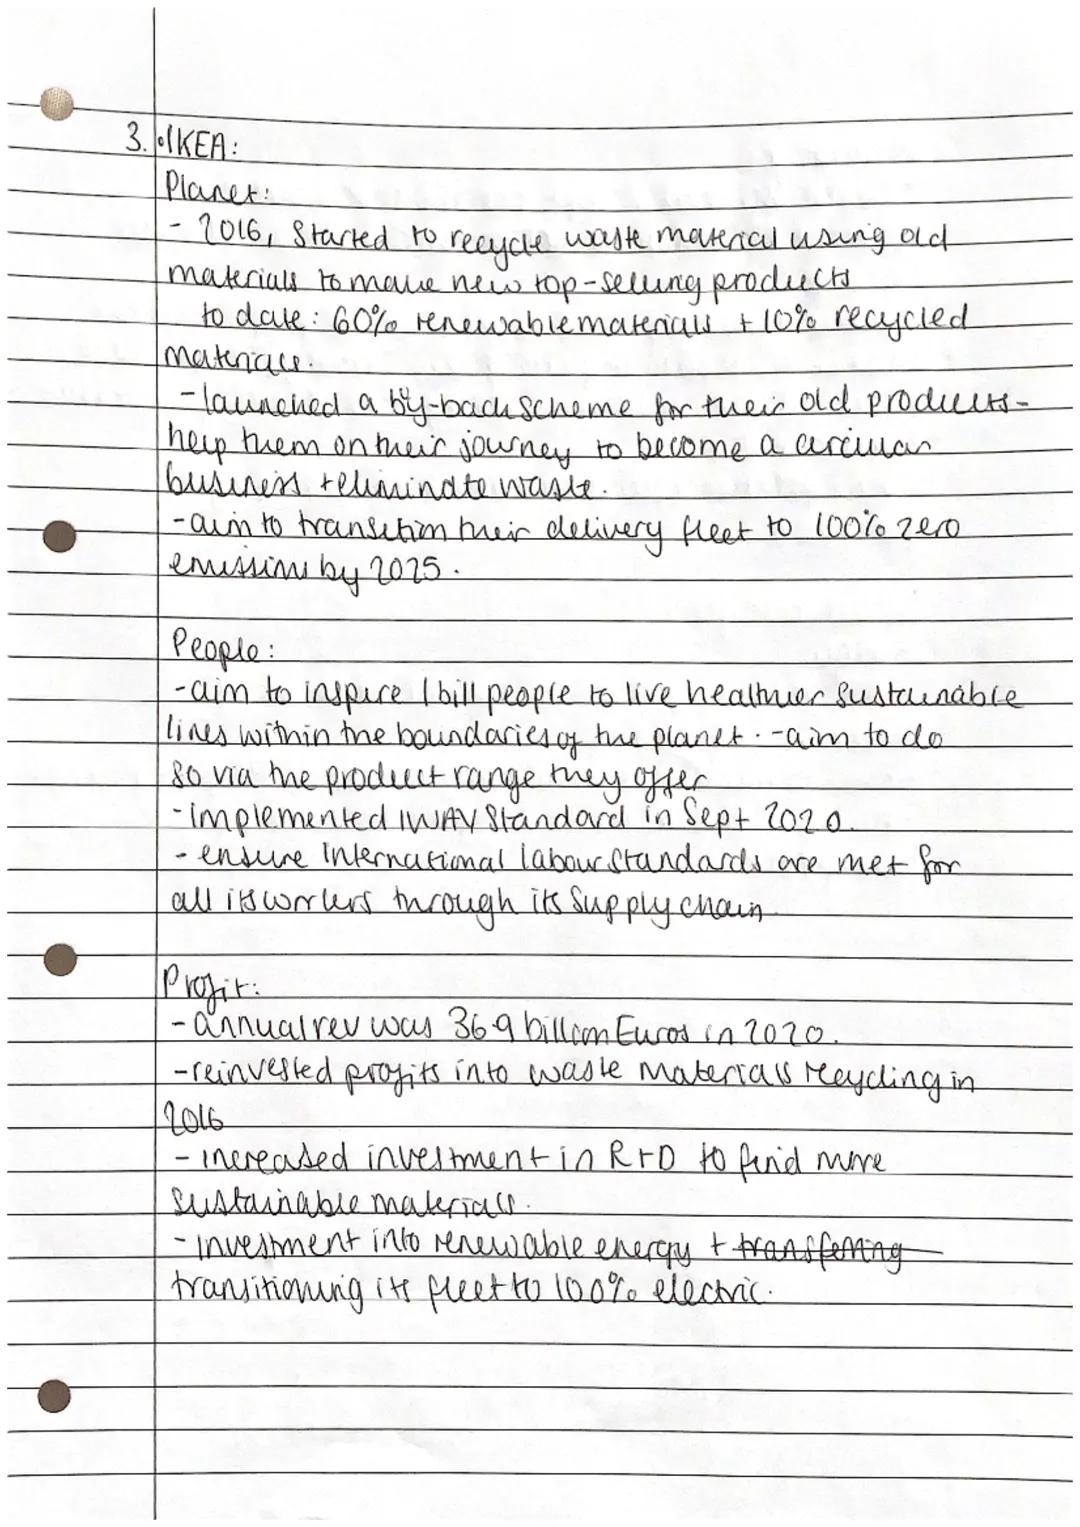 3. •IKEA:
Planet:
- 2016, Started to recycle waste material using old
materials to make new top-selling products
to date: 60% renewable materials + 10% recycled
materials.
- launched a by-back scheme for their old products -
help them on their journey to become a circular
business + eliminate waste.
- aim to transition their delivery fleet to 100% zero
emissions by 2025.
People:
- aim to inspire 1 bill people to live healthier sustainable
lives within the boundaries of the planet. - aim to do
so via the product range they offer
- implemented IWAY Standard in Sept 2020.
- ensure International labour standards are met for
all its workers through its supply chain
Profit:
- annual rev was 36.9 billion Euros in 2020.
- reinvested profits into waste materials recycling in
2016
- increased investment in R+D to find more
sustainable materials.
- investment into renewable energy + transferring
transitioning its fleet to 100% electric.